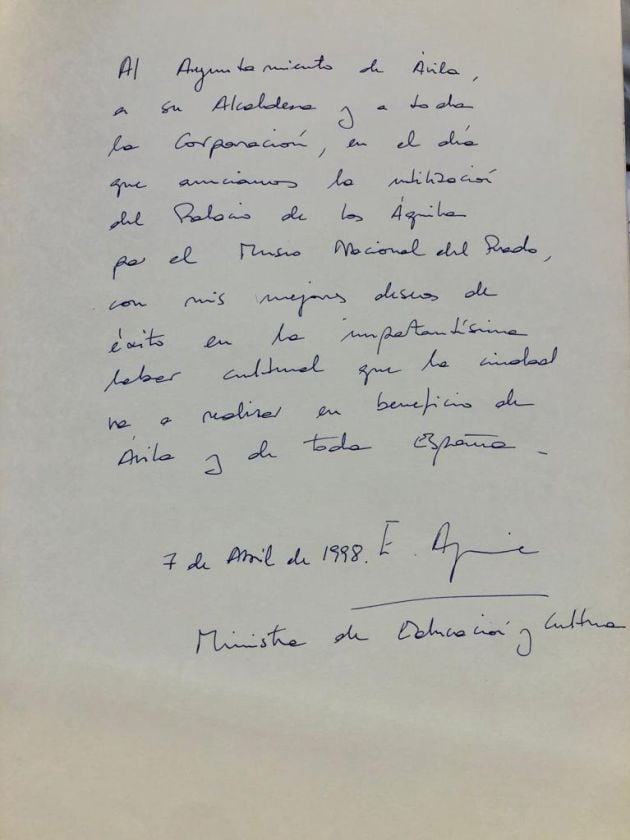 Al Ayuntamiento de Ávila,
a su Alcaldesa y a toda
la Corporación, en el día
que anunciamos la utilización
del Palacio de los Águila
por el Museo Nacional del Prado,
con mis mejores deseos de
éxito en la importantísima
labor cultural que la ciudad
va a realizar en beneficio de
Ávila y de toda España.
7 de Abril de 1998. E. Aguirre
Ministra de Educación y Cultura